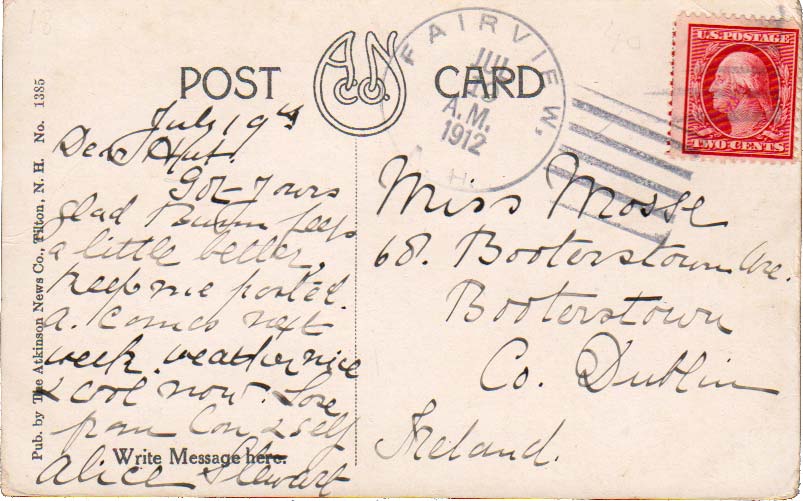 POST CARD
A.N.
CO.
FAIRVIEW,
JUL
A.M.
1912
N.H.
U.S. POSTAGE
TWO CENTS
Pub. by The Atkinson News Co., Tilton, N. H. No. 1385
July 19th
Dear
Got yours
glad feels
a little better,
Keep me posted.
A. comes next
week. weather nice
& cool now. Love
from Con & self
Alice Stewart
Write Message here.
Miss Mosse
68. Booterstown Ave.
Booterstown
Co. Dublin
Ireland.